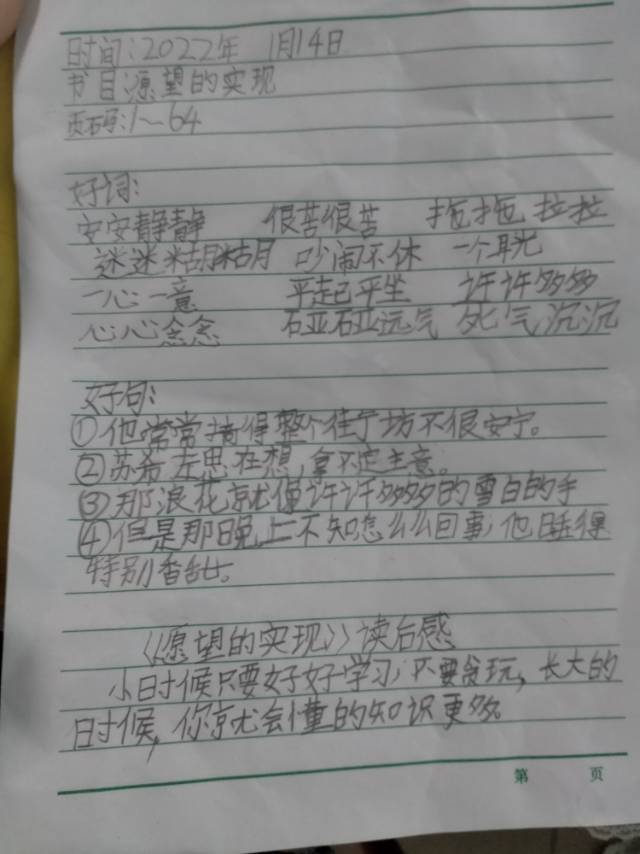 时间:2022年 1月14日
书目:愿望的实现
页码:1~64
好词:
安安静静 很苦很苦 拖拖拉拉
迷迷糊糊 吵闹不休 一个耳光
一心一意 平起平坐 许许多多
心心念念 死气沉沉
好句:
①他常常搞得整个街坊不很安宁。
②苏希左思在想,拿不定主意。
③那浪花就像许许多多的雪白的手
④但是那晚上不知怎么么回事,他睡得
特别香甜。
《愿望的实现》读后感
小时候只要好好学习,不要贪玩,长大的
时候,你就会懂的知识更多
第 页